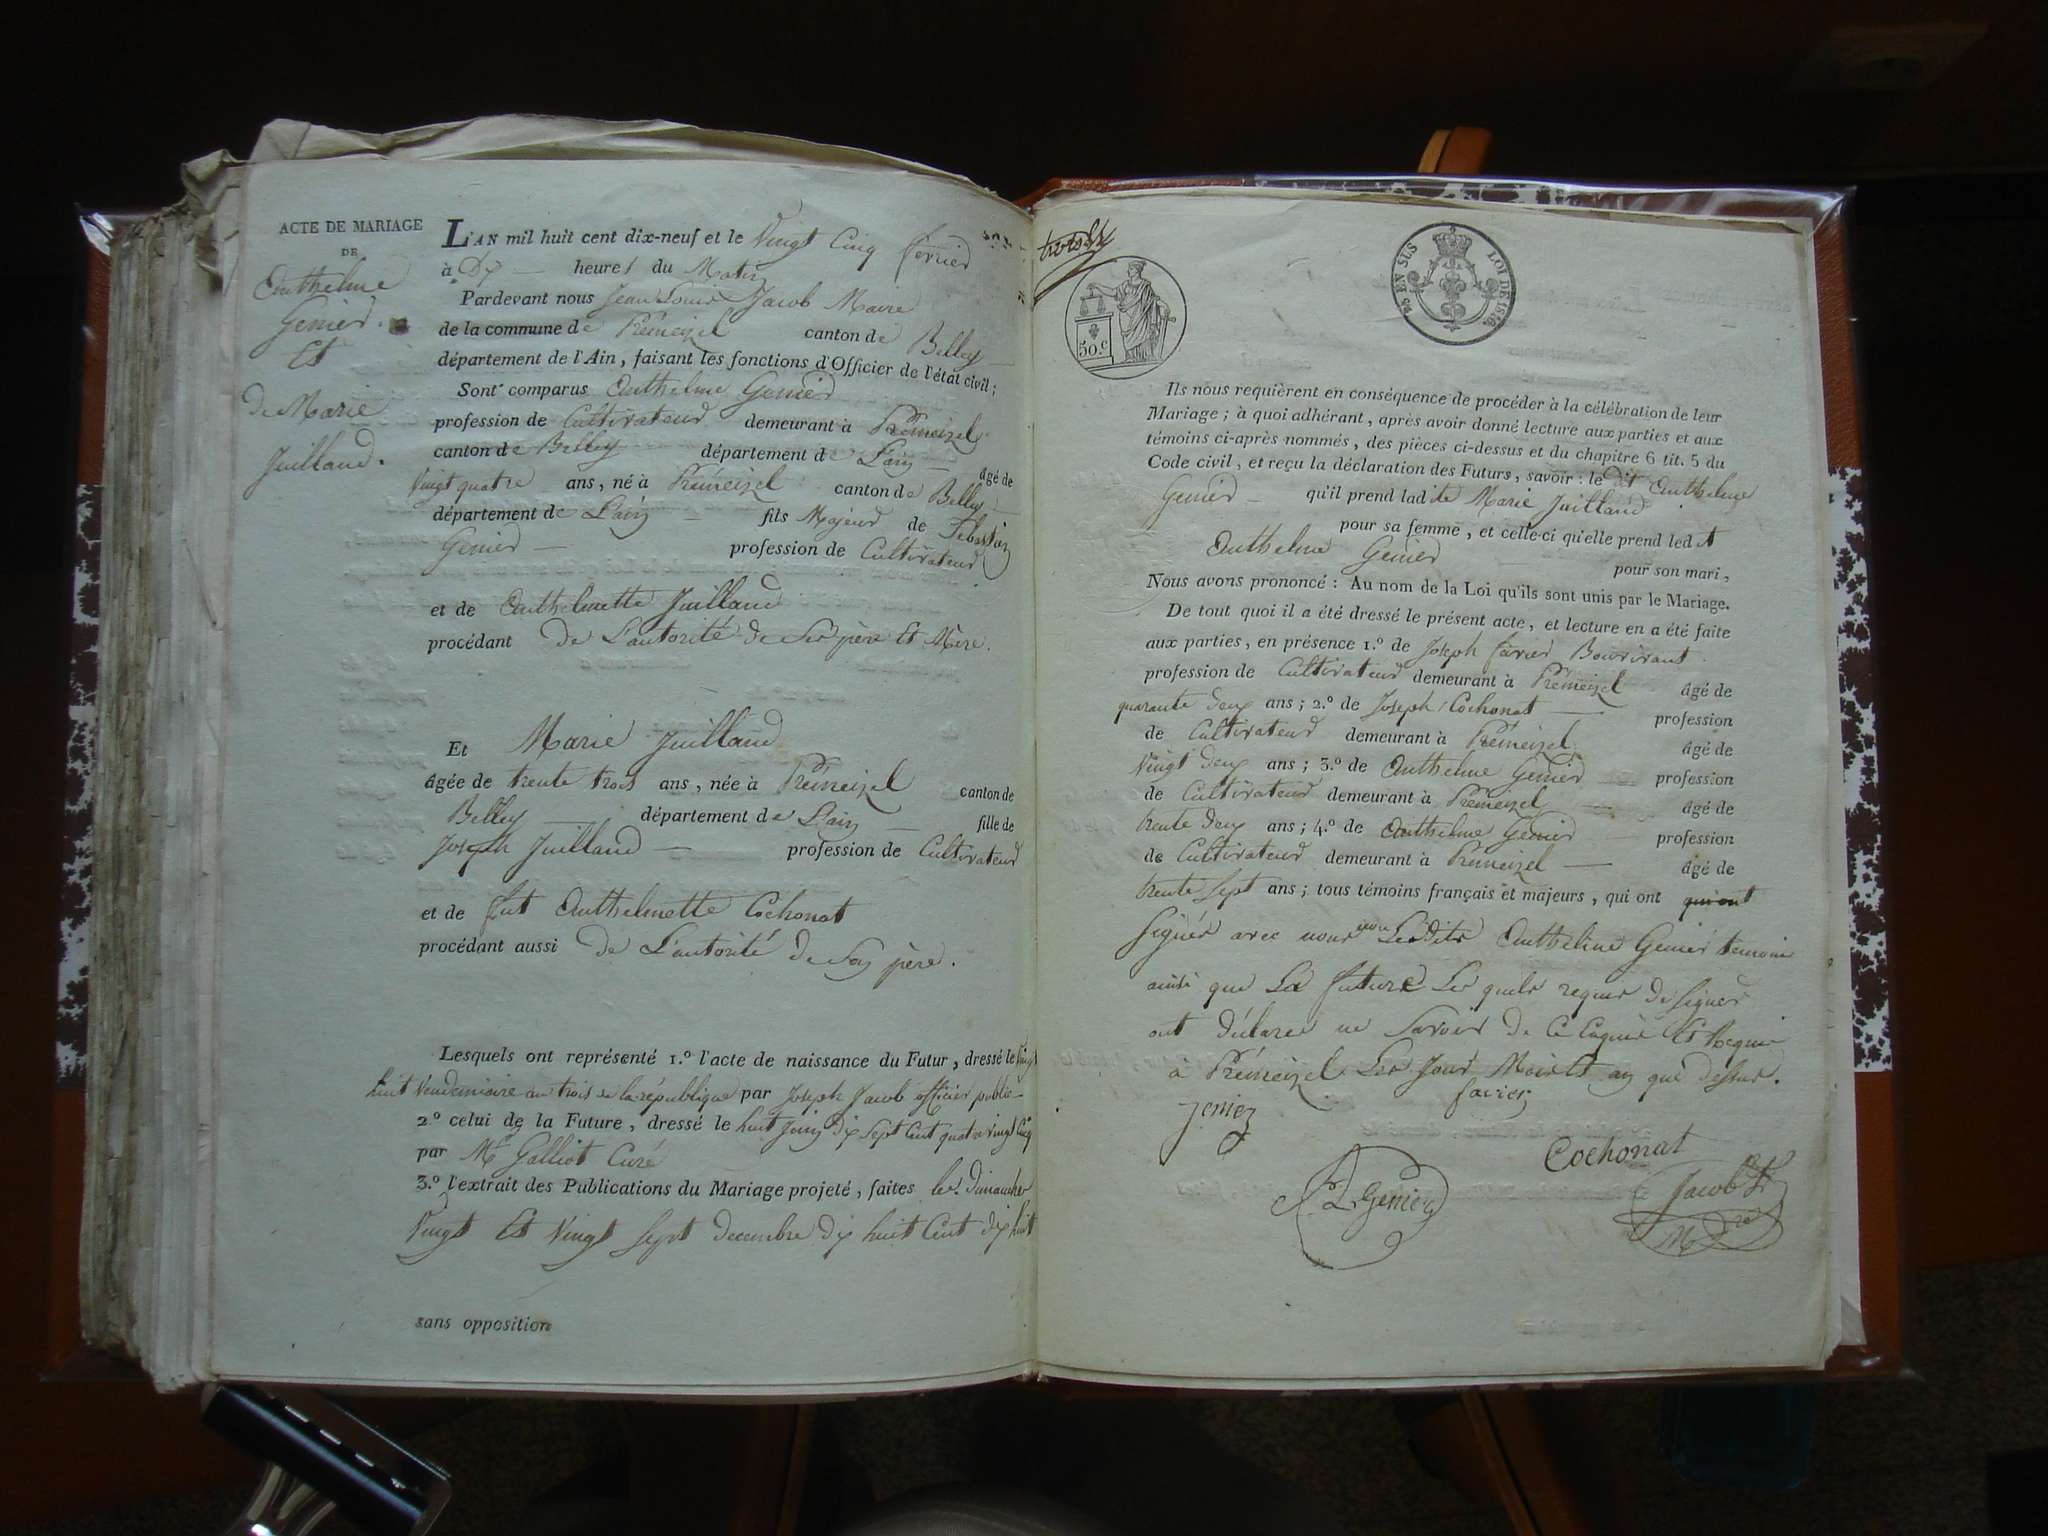 ACTE DE MARIAGE
DE
Anthelme
Genier.
Et
de Marie
Juilland.
L'AN mil huit cent dix-neuf et le Vingt Cinq fevrier
à Dix heures du Matin
Pardevant nous Jean Louis Jacob Maire
de la commune de Prémeizel canton de Belley
département de l'Ain, faisant les fonctions d'Officier de l'état civil;
Sont comparus Anthelme Genier
profession de Cultivateur demeurant à Prémeizel
canton de Belley département de L'ain âgé de
Vingt quatre ans, né à Prémeizel canton de Belley
département de L'ain fils Majeur de Sebastien
Genier profession de Cultivateur
et de Anthelmette Juilland
procédant de L'autorité de Ses père Et Mère.
Et Marie Juilland
âgée de trente trois ans, née à Prémeizel canton de
Belley département de L'ain fille de
Joseph Juilland profession de Cultivateur
et de fut Anthelmette Cochonat
procédant aussi de L'autorité de Son père.
Lesquels ont représenté 1.º l'acte de naissance du Futur, dressé le Vingt
huit Vendemiaire an trois de la république par Joseph Jacob officier public
2.º celui de la Future, dressé le huit Juin dix Sept Cent quatre vingt Cinq
par Mr Galliot Curé
3.º l'extrait des Publications du Mariage projeté, faites les Dimanches
Vingt Et Vingt Sept decembre dix huit Cent dix huit
sans opposition
50.c
EN SUS LOI DE 1816.
Ils nous requièrent en conséquence de procéder à la célébration de leur
Mariage; à quoi adhérant, après avoir donné lecture aux parties et aux
témoins ci-après nommés, des pièces ci-dessus et du chapitre 6 tit. 5 du
Code civil, et reçu la déclaration des Futurs, savoir: le dit Anthelme
Genier qu'il prend ladite Marie Juilland
pour sa femme, et celle-ci qu'elle prend ledit
Anthelme Genier pour son mari,
Nous avons prononcé: Au nom de la Loi qu'ils sont unis par le Mariage.
De tout quoi il a été dressé le présent acte, et lecture en a été faite
aux parties, en présence 1.º de Joseph favier Bouvirant
profession de Cultivateur demeurant à Prémeizel âgé de
quarante deux ans; 2.º de Joseph Cochonat profession
de Cultivateur demeurant à Prémeizel âgé de
Vingt deux ans; 3.º de Anthelme Genier profession
de Cultivateur demeurant à Prémeizel âgé de
trente deux ans; 4.º de Anthelme Genier profession
de Cultivateur demeurant à Prémeizel âgé de
trente Sept ans; tous témoins français et majeurs, qui ont qui ont
Signés avec nous non Lesdits Anthelme Genier temoins
ainsi que La future Les quels requis de Signer
ont déclaré ne Savoir de Ce Enquis Et Requis
à Prémeizel Les Jour Mois Et an que dessus.
Jeniez
favier
Cochonat
Genier
Jacob